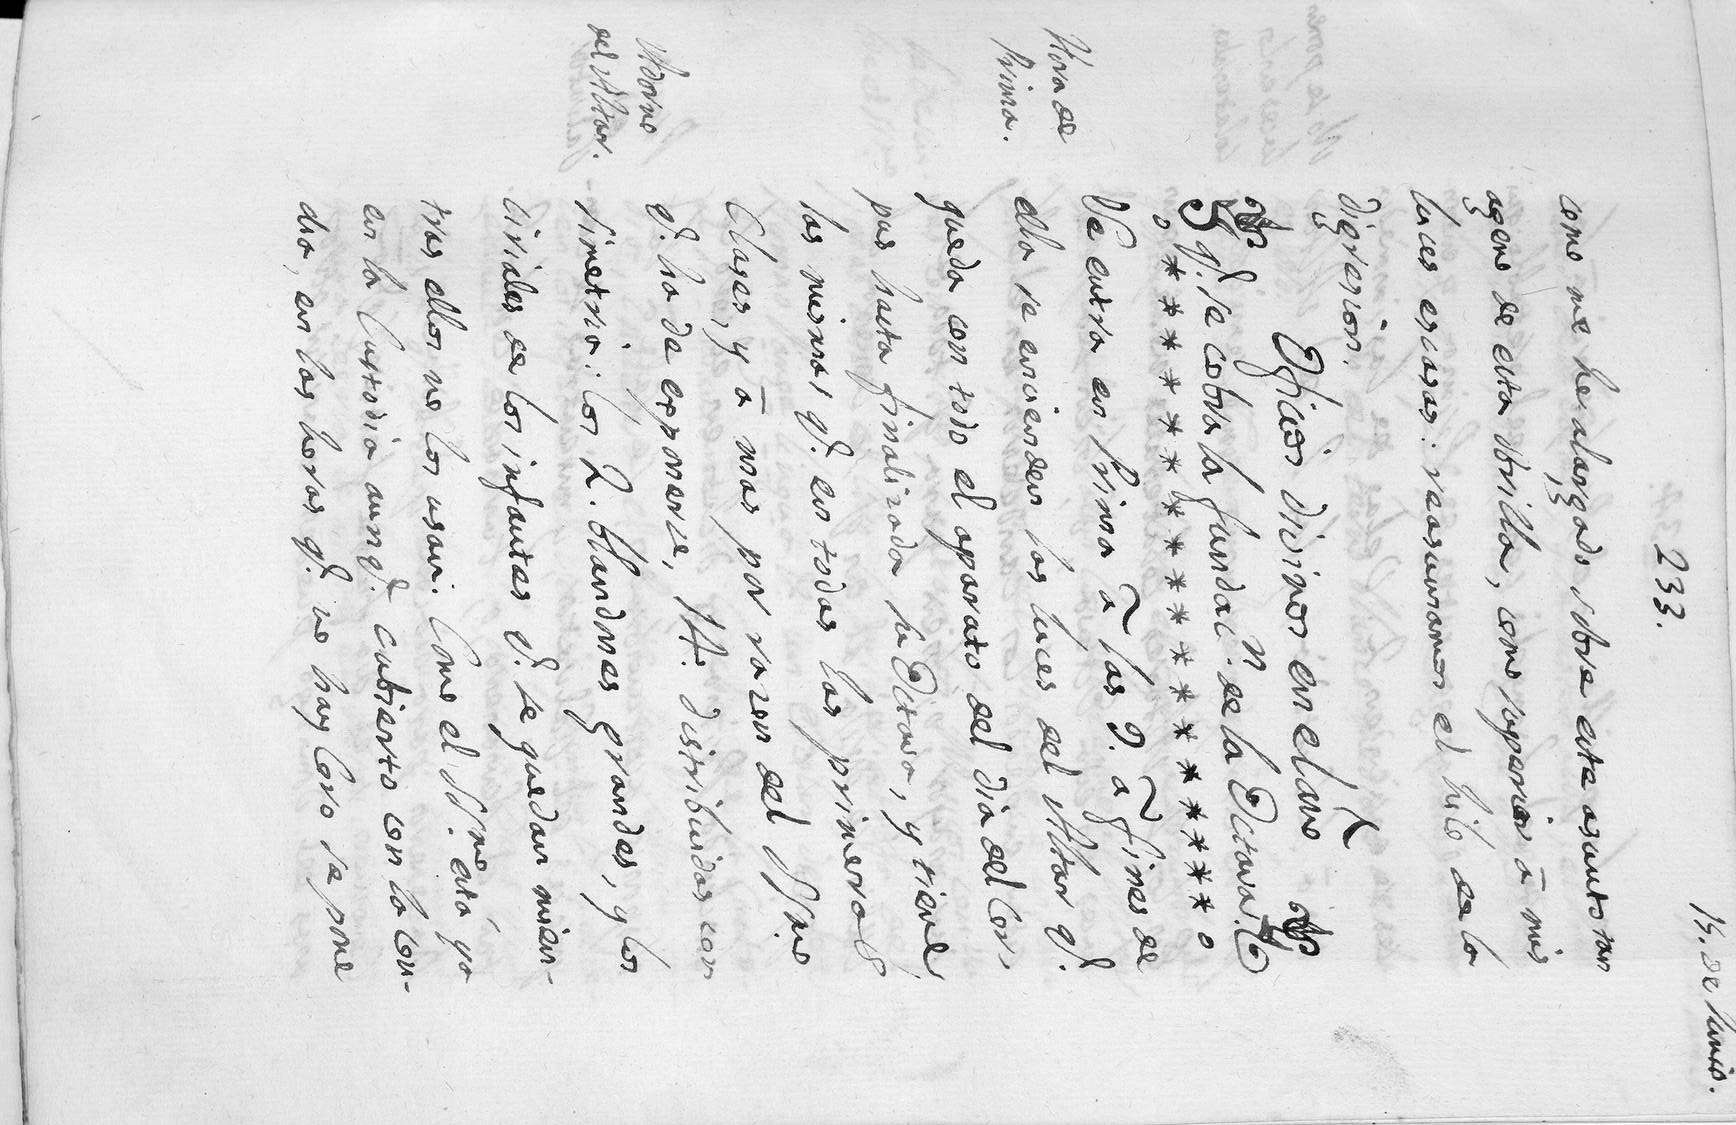 14. de Junio.
233.
como me he alargado sobre este asunto tan
ageno de esta obrilla, como superior â mis
luces escasas: reasumamos el hilo de la
digresion.
Oficios divinos en el ave
q̃. se cobra la fundac.n de la Octava.
* * * * * * * * * * * * * * *
Hora de
Prima.
Se entra en Prima â las 9. â fines de
ella se encienden las luces del Altar q̃.
queda con todo el aparato del dia del Cor-
pus hasta finalizada la Octava, y tiene
las mismas q̃. en todas las primeras
Clases, y â mas por razon del SSmo
Adorno
del Altar.
q̃. ha de exponerse, 14. distribuidas con
simetria: los 2. blandones grandes, y los
ciriales de los infantes q̃. se quedan mien-
tras ellos no los usan. Como el SSmo. está ya
en la Custodia aunq̃. cubierto con la con-
cha, en las horas q̃. no hay Coro se pone